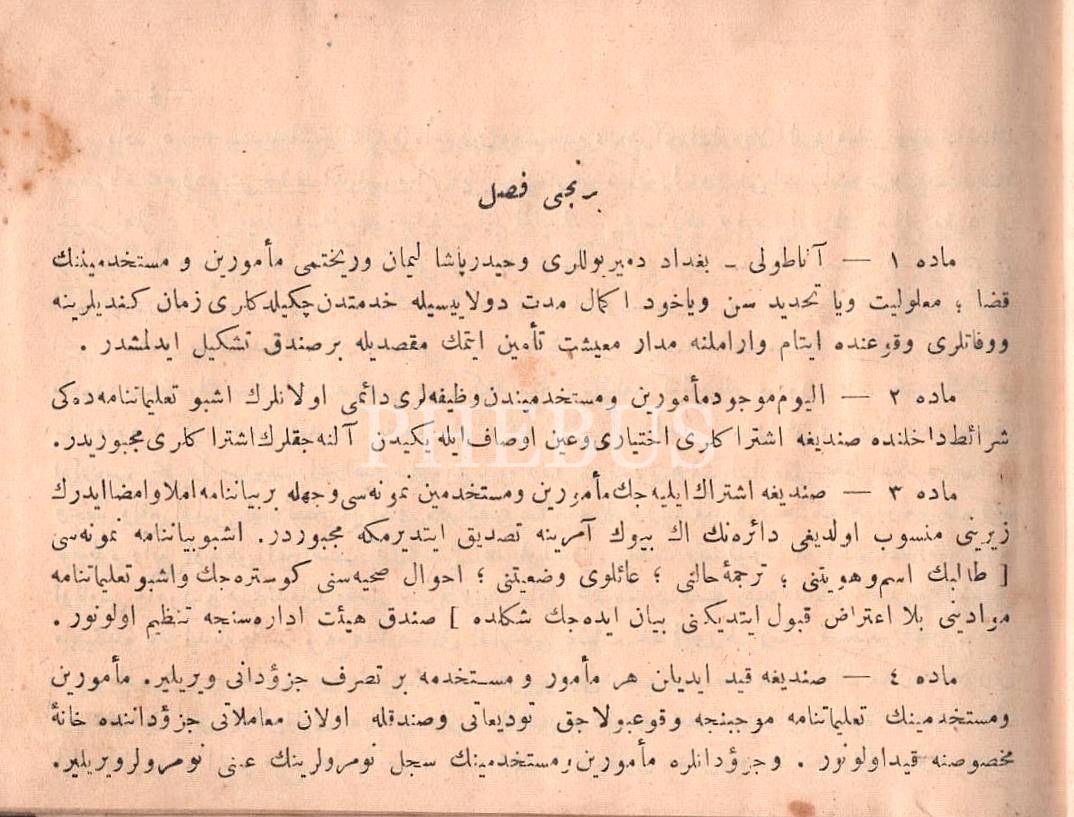 برنجی فصل
ماده ١ — آناطولی - بغداد دمیریوللری وحیدرپاشا لیمان وریختمی مأمورین و مستخدمیننك
قضا ؛ معلولیت ویا تحدید سن ویاخود اكمال مدت دولاییسیله خدمتدن چكیله‌كلری زمان كندیلرینه
ووفاتلری وقوعنده ایتام واراملنه مدار معیشت تأمین ایتمك مقصدیله بر صندق تشكیل ایدلمشدر .
ماده ٢ — الیوم موجود مأمورین ومستخدمیندن وظیفه‌لری دائمی اولانلرك اشبو تعلیماتنامه‌ده‌كی
شرائط داخلنده صندیغه اشتراكلری اختیاری وعین اوصاف ایله یكیدن آلنه‌جقلرك اشتراكلری مجبوریدر.
PHEBUS
ماده ٣ — صندیغه اشتراك ایلیه‌جك مأمورین ومستخدمین نمونه‌سی وجهله بر بیاننامه املا وامضا ایدرك
زیرینی منسوب اولدیغی دائره‌نك اك بیوك آمرینه تصدیق ایتدیرمكه مجبوردر. اشبو بیاننامه نمونه‌سی
[ طالبك اسم وهویتنی ؛ ترجمۀ حالنی ؛ عائلوی وضعیتنی ؛ احوال صحیه‌سنی كوستره‌جك واشبو تعلیماتنامه
موادینی بلا اعتراض قبول ایتدیكنی بیان ایده‌جك شكلده ] صندق هیئت اداره‌سنجه تنظیم اولونور .
ماده ٤ — صندیغه قید ایدیلن هر مأمور و مستخدمه بر تصرف جزؤدانی ویریلیر. مأمورین
ومستخدمینك تعلیماتنامه موجبنجه وقوعبولاجق تودیعاتی وصندقله اولان معاملاتی جزؤداننده خانۀ
مخصوصنه قید اولونور . وجزؤدانلره مأمورین ومستخدمینك سجل نومرولرینك عینی نومرولر ویریلیر.